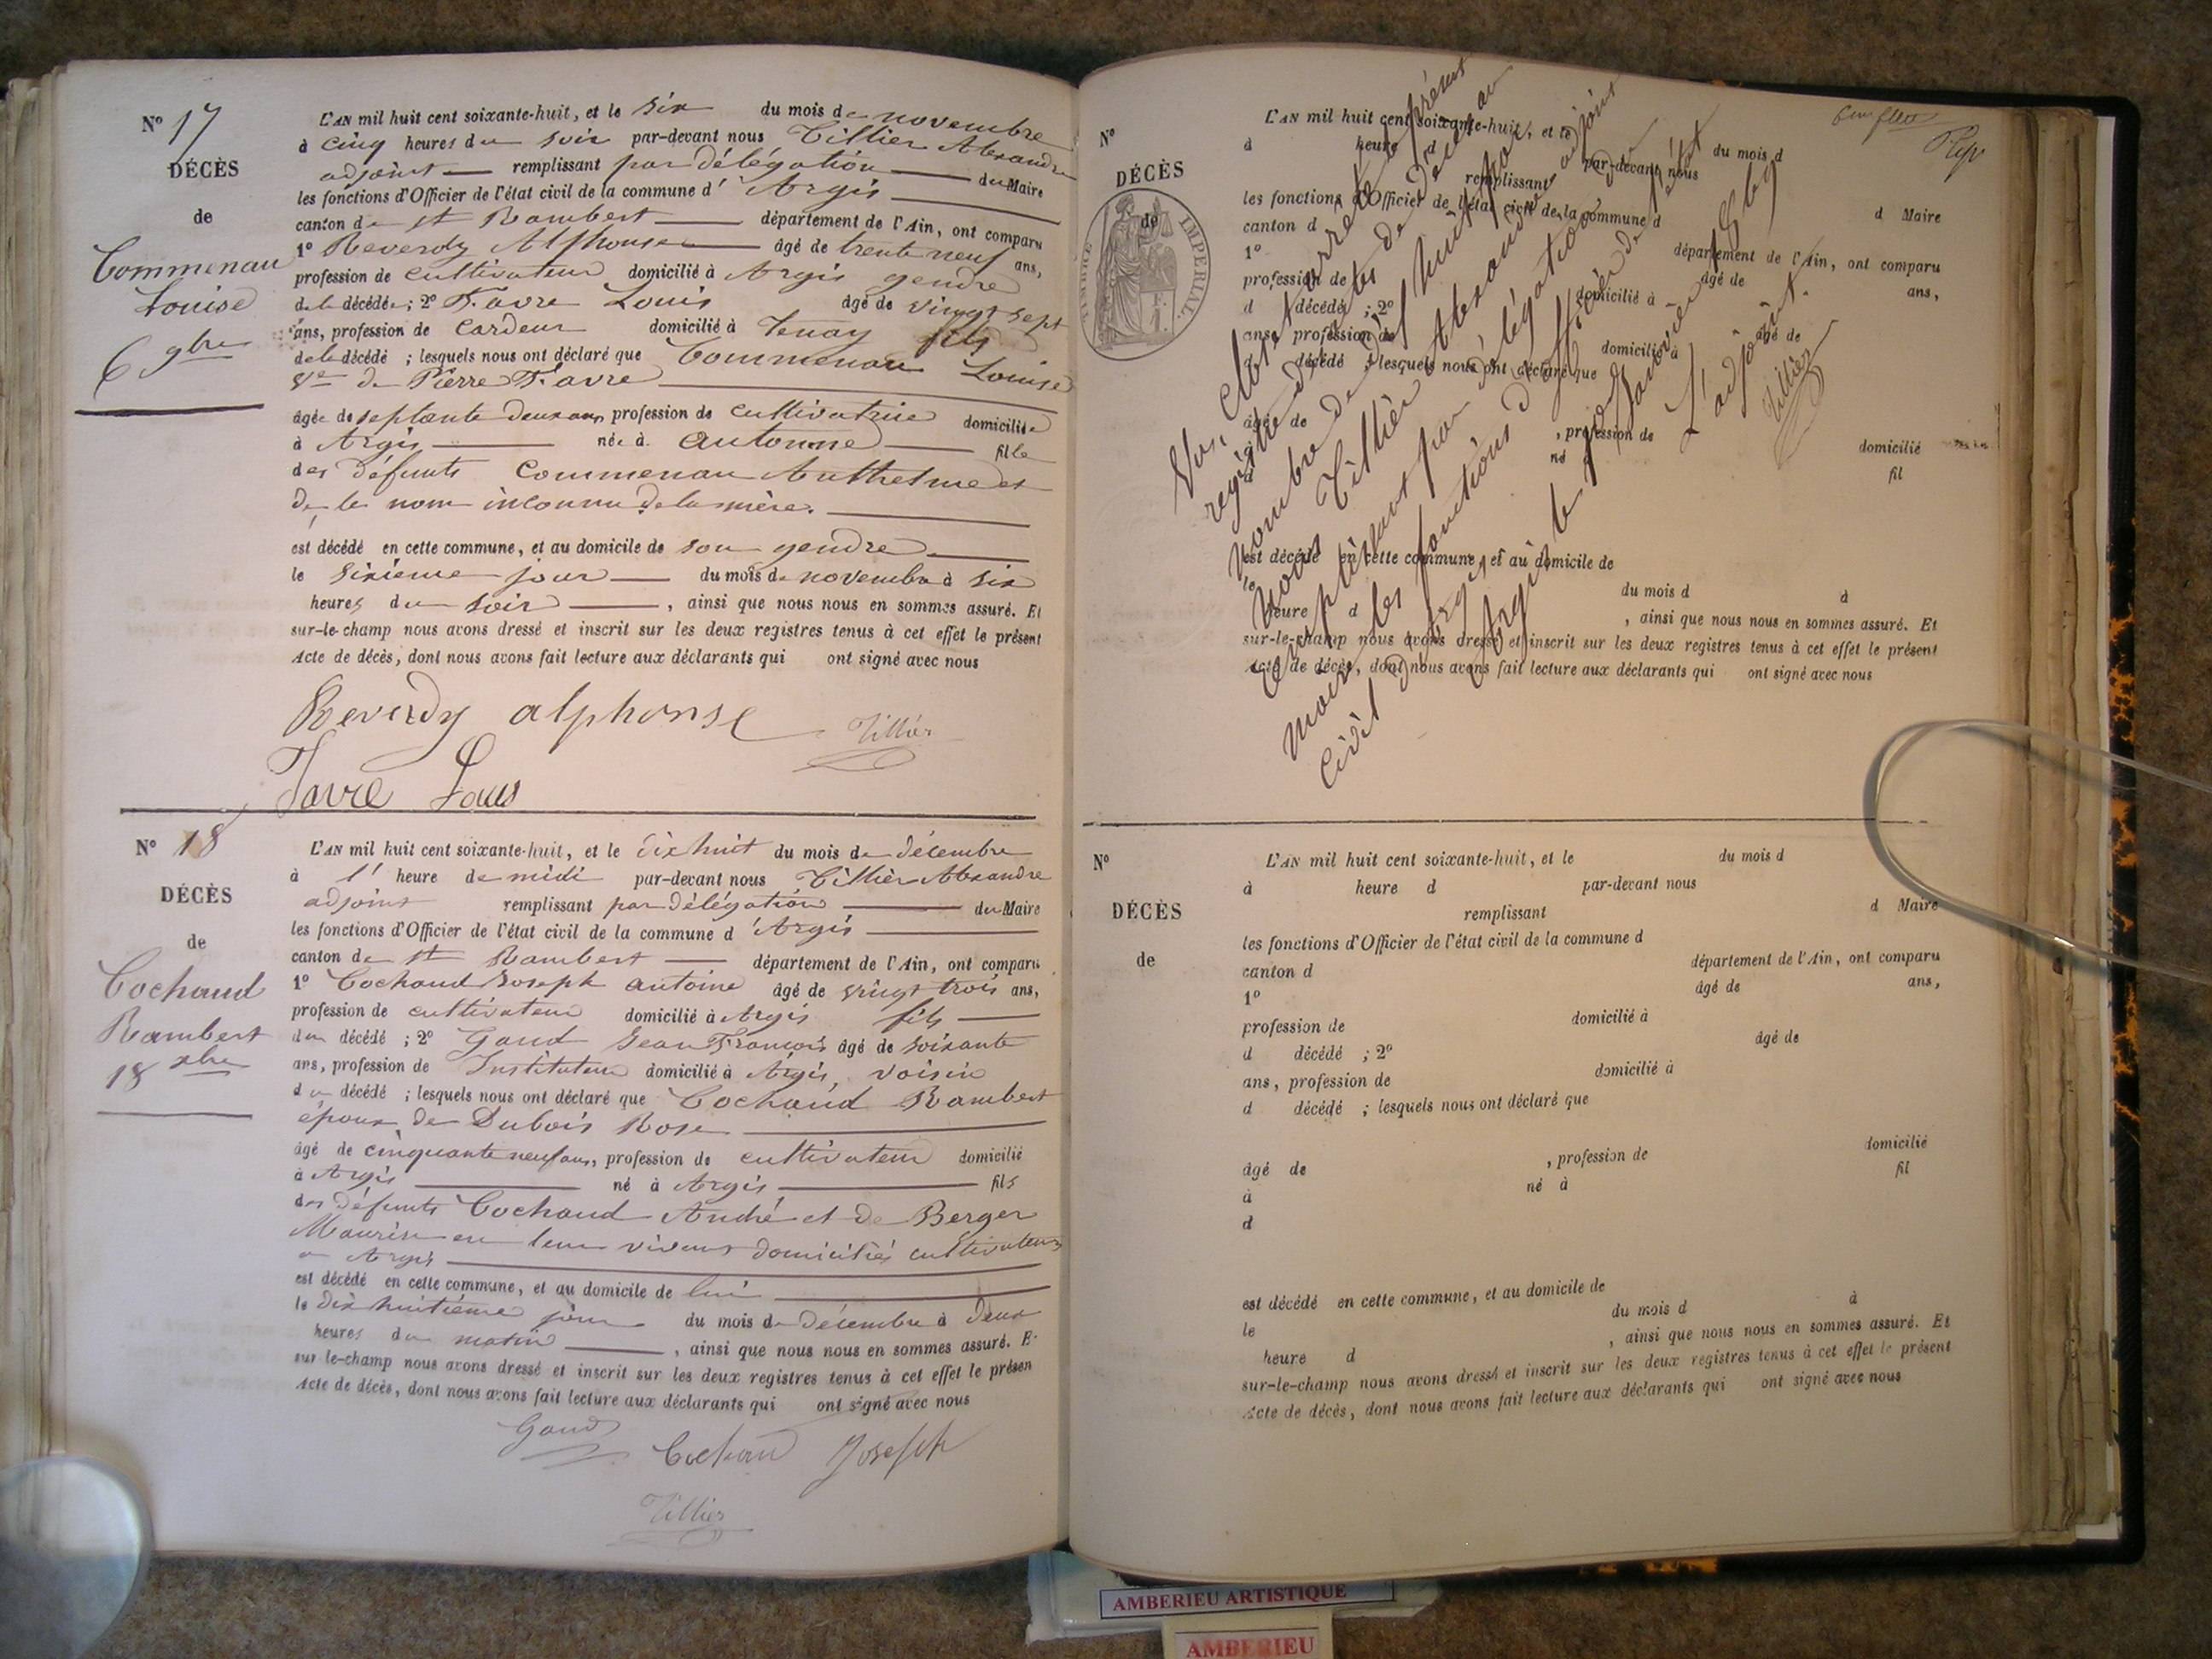 N° 17
DÉCÈS
de
Commenau
Louise
6 9bre
L'AN mil huit cent soixante-huit, et le six du mois de novembre
à cinq heures du soir par-devant nous Tillier Alexandre
adjoint remplissant par délégation du Maire
les fonctions d'Officier de l'état civil de la commune d'Argis
canton de St Rambert département de l'Ain, ont comparu
1° Reverdy Alphonse âgé de trente neuf ans,
profession de cultivateur domicilié à Argis gendre
de la décédée ; 2° Favre Louis âgé de vingt sept
ans, profession de cardeur domicilié à Tenay fils
de la décédé ; lesquels nous ont déclaré que Commenau Louise
Ve de Pierre Favre
âgée de septante deux ans, profession de cultivatrice domiciliée
à Argis née à Automne fille
des défunts Commenau Anthelme et
de le nom inconnu de la mère.
est décédé en cette commune, et au domicile de son gendre
le sixieme jour du mois de novembre à six
heures du soir, ainsi que nous nous en sommes assuré. Et
sur-le-champ nous avons dressé et inscrit sur les deux registres tenus à cet effet le présent
Acte de décès, dont nous avons fait lecture aux déclarants qui ont signé avec nous
Reverdy alphonse Tillier
Favre Louis
N° 18
DÉCÈS
de
Cochaud
Rambert
18 xbre
L'AN mil huit cent soixante-huit, et le dix huit du mois de décembre
à l' heure de midi par-devant nous Tillier Alexandre
adjoint remplissant par délégation du Maire
les fonctions d'Officier de l'état civil de la commune d'Argis
canton de St Rambert département de l'Ain, ont comparu
1° Cochaud Joseph antoine âgé de vingt trois ans,
profession de cultivateur domicilié à Argis fils
du décédé ; 2° Gaud Jean François âgé de soixante
ans, profession de Instituteur domicilié à Argis, voisin
du décédé ; lesquels nous ont déclaré que Cochaud Rambert
époux de Dubois Rose
âgé de cinquante neuf ans, profession de cultivateur domicilié
à Argis né à Argis fils
des défunts Cochaud André et de Berger
Maurise en leur vivant domiciliés cultivateurs
a Argis
est décédé en cette commune, et au domicile de lui
le dix huitième jour du mois de décembre à deux
heures du matin, ainsi que nous nous en sommes assuré. E
sur le-champ nous avons dressé et inscrit sur les deux registres tenus à cet effet le présen
Acte de décès, dont nous avons fait lecture aux déclarants qui ont signé avec nous
Gaud
Cochaud Joseph
Tillier
N°
DÉCÈS
de
TIMBRE IMPERIAL
L'AN mil huit cent soixante-huit, et le du mois d
à heure d par-devant nous
remplissant d Maire
les fonctions d'Officier de l'état civil de la commune d
canton d département de l'Ain, ont comparu
1° âgé de ans,
profession de domicilié à
d décédé ; 2° âgé de
ans, profession de domicilié à
d décédé ; lesquels nous ont déclaré que
âgé de , profession de domicilié
à né à fil
d
est décédé en cette commune, et au domicile de
le du mois d à
heure d , ainsi que nous nous en sommes assuré. Et
sur-le-champ nous avons dressé et inscrit sur les deux registres tenus à cet effet le présent
Acte de décès, dont nous avons fait lecture aux déclarants qui ont signé avec nous
Vu, Clos et arrêté le présent
registre des actes de décès au
nombre de dix huit par
Nous Tillier Alexandre adjoint
remplissant par délégation du
maire les fonctions d'officier de l'état
Civil d'Argis
Argis le janvier 1869
L'adjoint.
Tillier
N°
DÉCÈS
de
L'AN mil huit cent soixante-huit, et le du mois d
à heure d par-devant nous
remplissant d Maire
les fonctions d'Officier de l'état civil de la commune d
canton d département de l'Ain, ont comparu
1° âgé de ans,
profession de domicilié à
d décédé ; 2° âgé de
ans, profession de domicilié à
d décédé ; lesquels nous ont déclaré que
âgé de , profession de domicilié
à né à fil
d
est décédé en cette commune, et au domicile de
le du mois d à
heure d , ainsi que nous nous en sommes assuré. Et
sur-le-champ nous avons dressé et inscrit sur les deux registres tenus à cet effet le présent
Acte de décès, dont nous avons fait lecture aux déclarants qui ont signé avec nous
AMBERIEU ARTISTIQUE
AMBERIEU